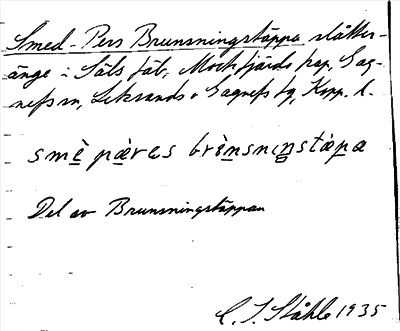 Smed-Pers Brunsningstäppa slåtter-
änge i Säls fäb, Mockfjärds kap, Gag-
nefs sn, Leksands o Gagnefs tg, Kopp. l.
smè̱ pæ̱res brìnsnıŋstæpa
Del av Brunsningstäppan
C. I. Ståhle 1935